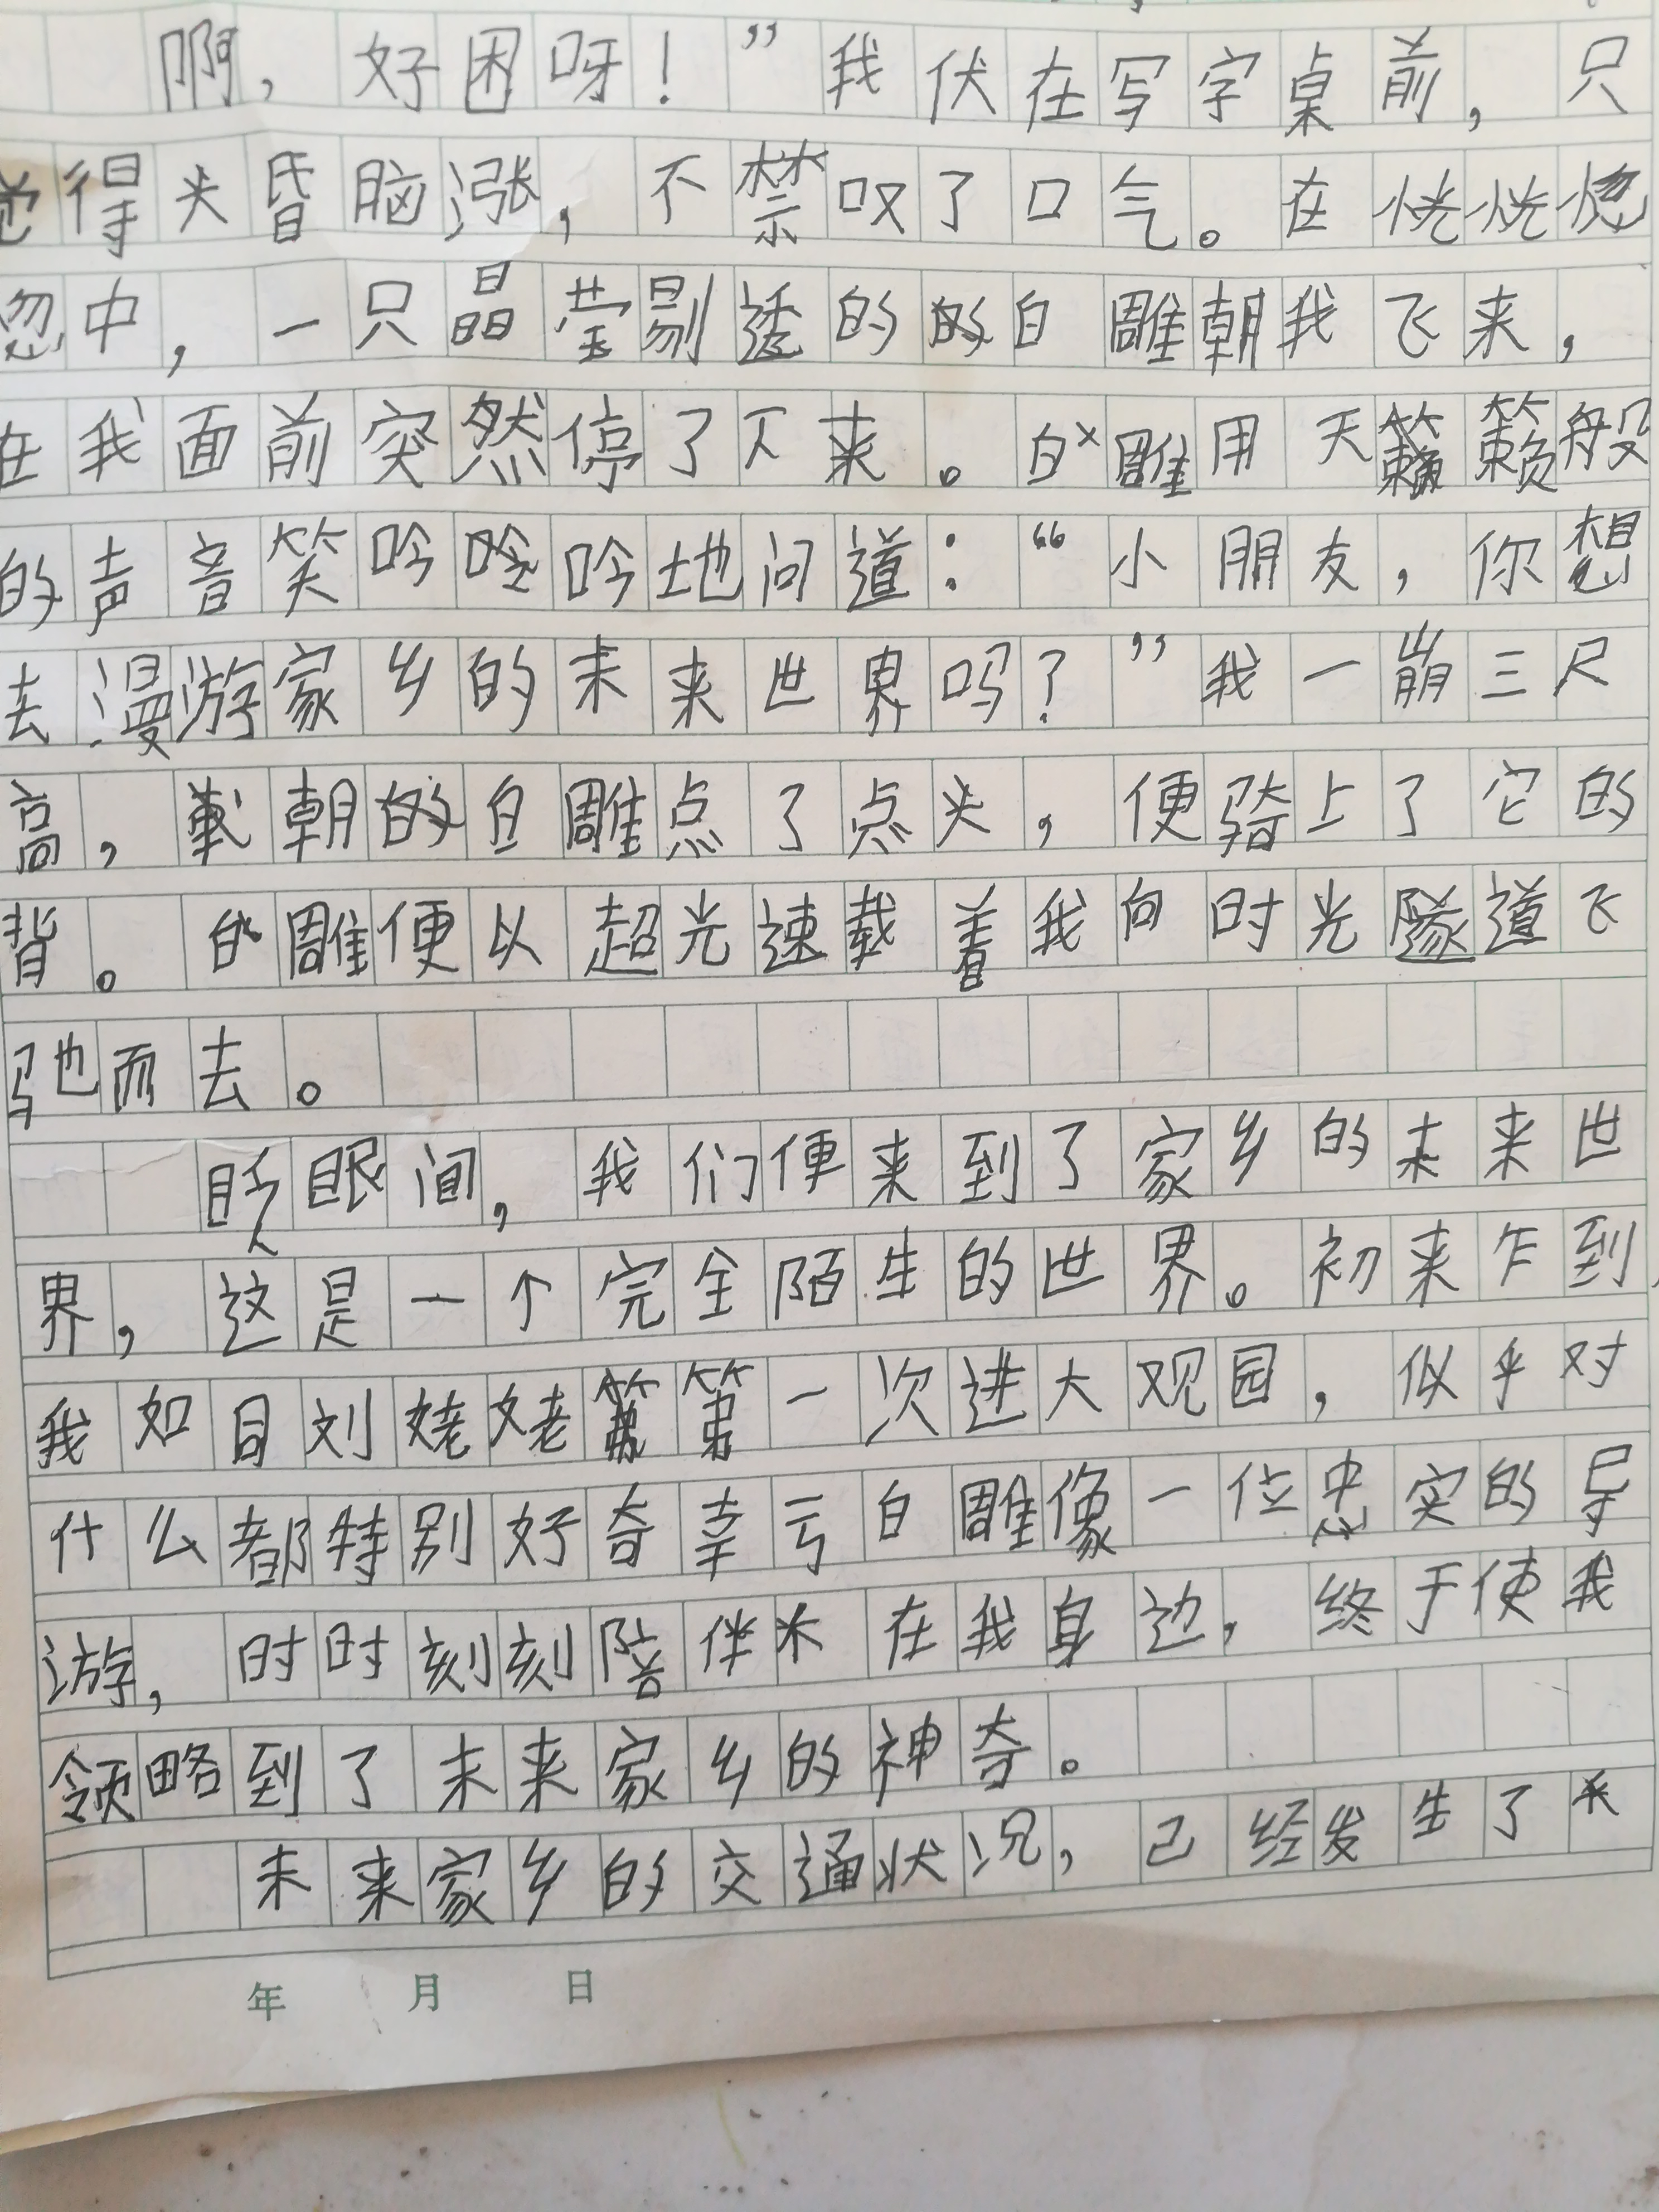 啊，好困呀！”我伏在写字桌前，只
觉得头昏脑涨，不禁叹了口气。在恍恍惚
忽中，一只晶莹剔透的的白雕朝我飞来，
在我面前突然停了下来。白雕用天籁籁般
的声音笑吟吟吟地问道：“小朋友，你想
去漫游家乡的未来世界吗？”我一崩三尺
高，朝白雕点了点头，便骑上了它的
背。白雕便以超光速载着我向时光隧道飞
驰而去。
眨眼间，我们便来到了家乡的未来世
界，这是一个完全陌生的世界。初来乍到，
我如目刘姥姥第一次进大观园，似乎对
什么都特别好奇幸亏白雕像一位忠实的导
游，时时刻刻陪伴在我身边，终于使我
领略到了未来家乡的神奇。
未来家乡的交通状况，己经发生了
年 月 日